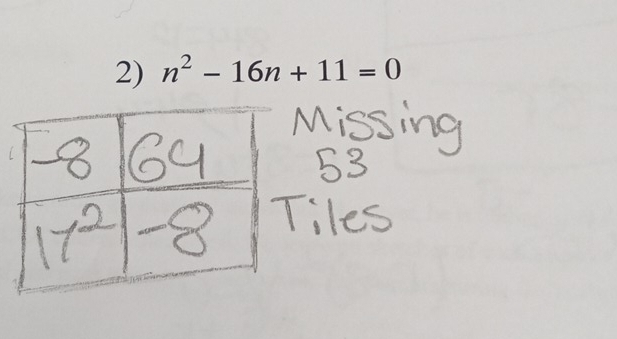 2) n² − 16n + 11 = 0
-8 64 Missing
53
17² -8 Tiles